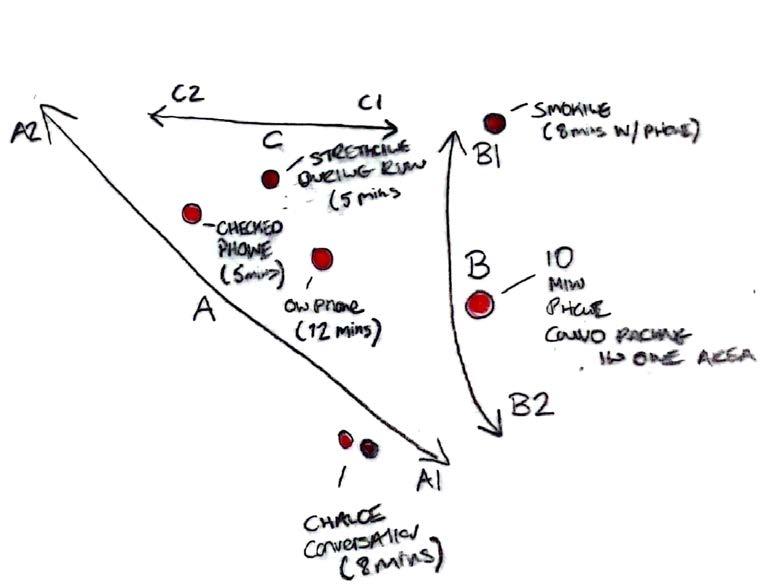 C2
C1
A2
C
SMOKING
(8 mins W/ PHONE)
B1
STRETCHING
DURING RUN
(5 mins
CHECKED
PHONE
(5 mins)
A
ON PHONE
(12 mins)
B
10
MIN
PHONE
COULD PACING
IN ONE AREA
B2
A1
CHANCE
CONVERSATION
(8 mins)